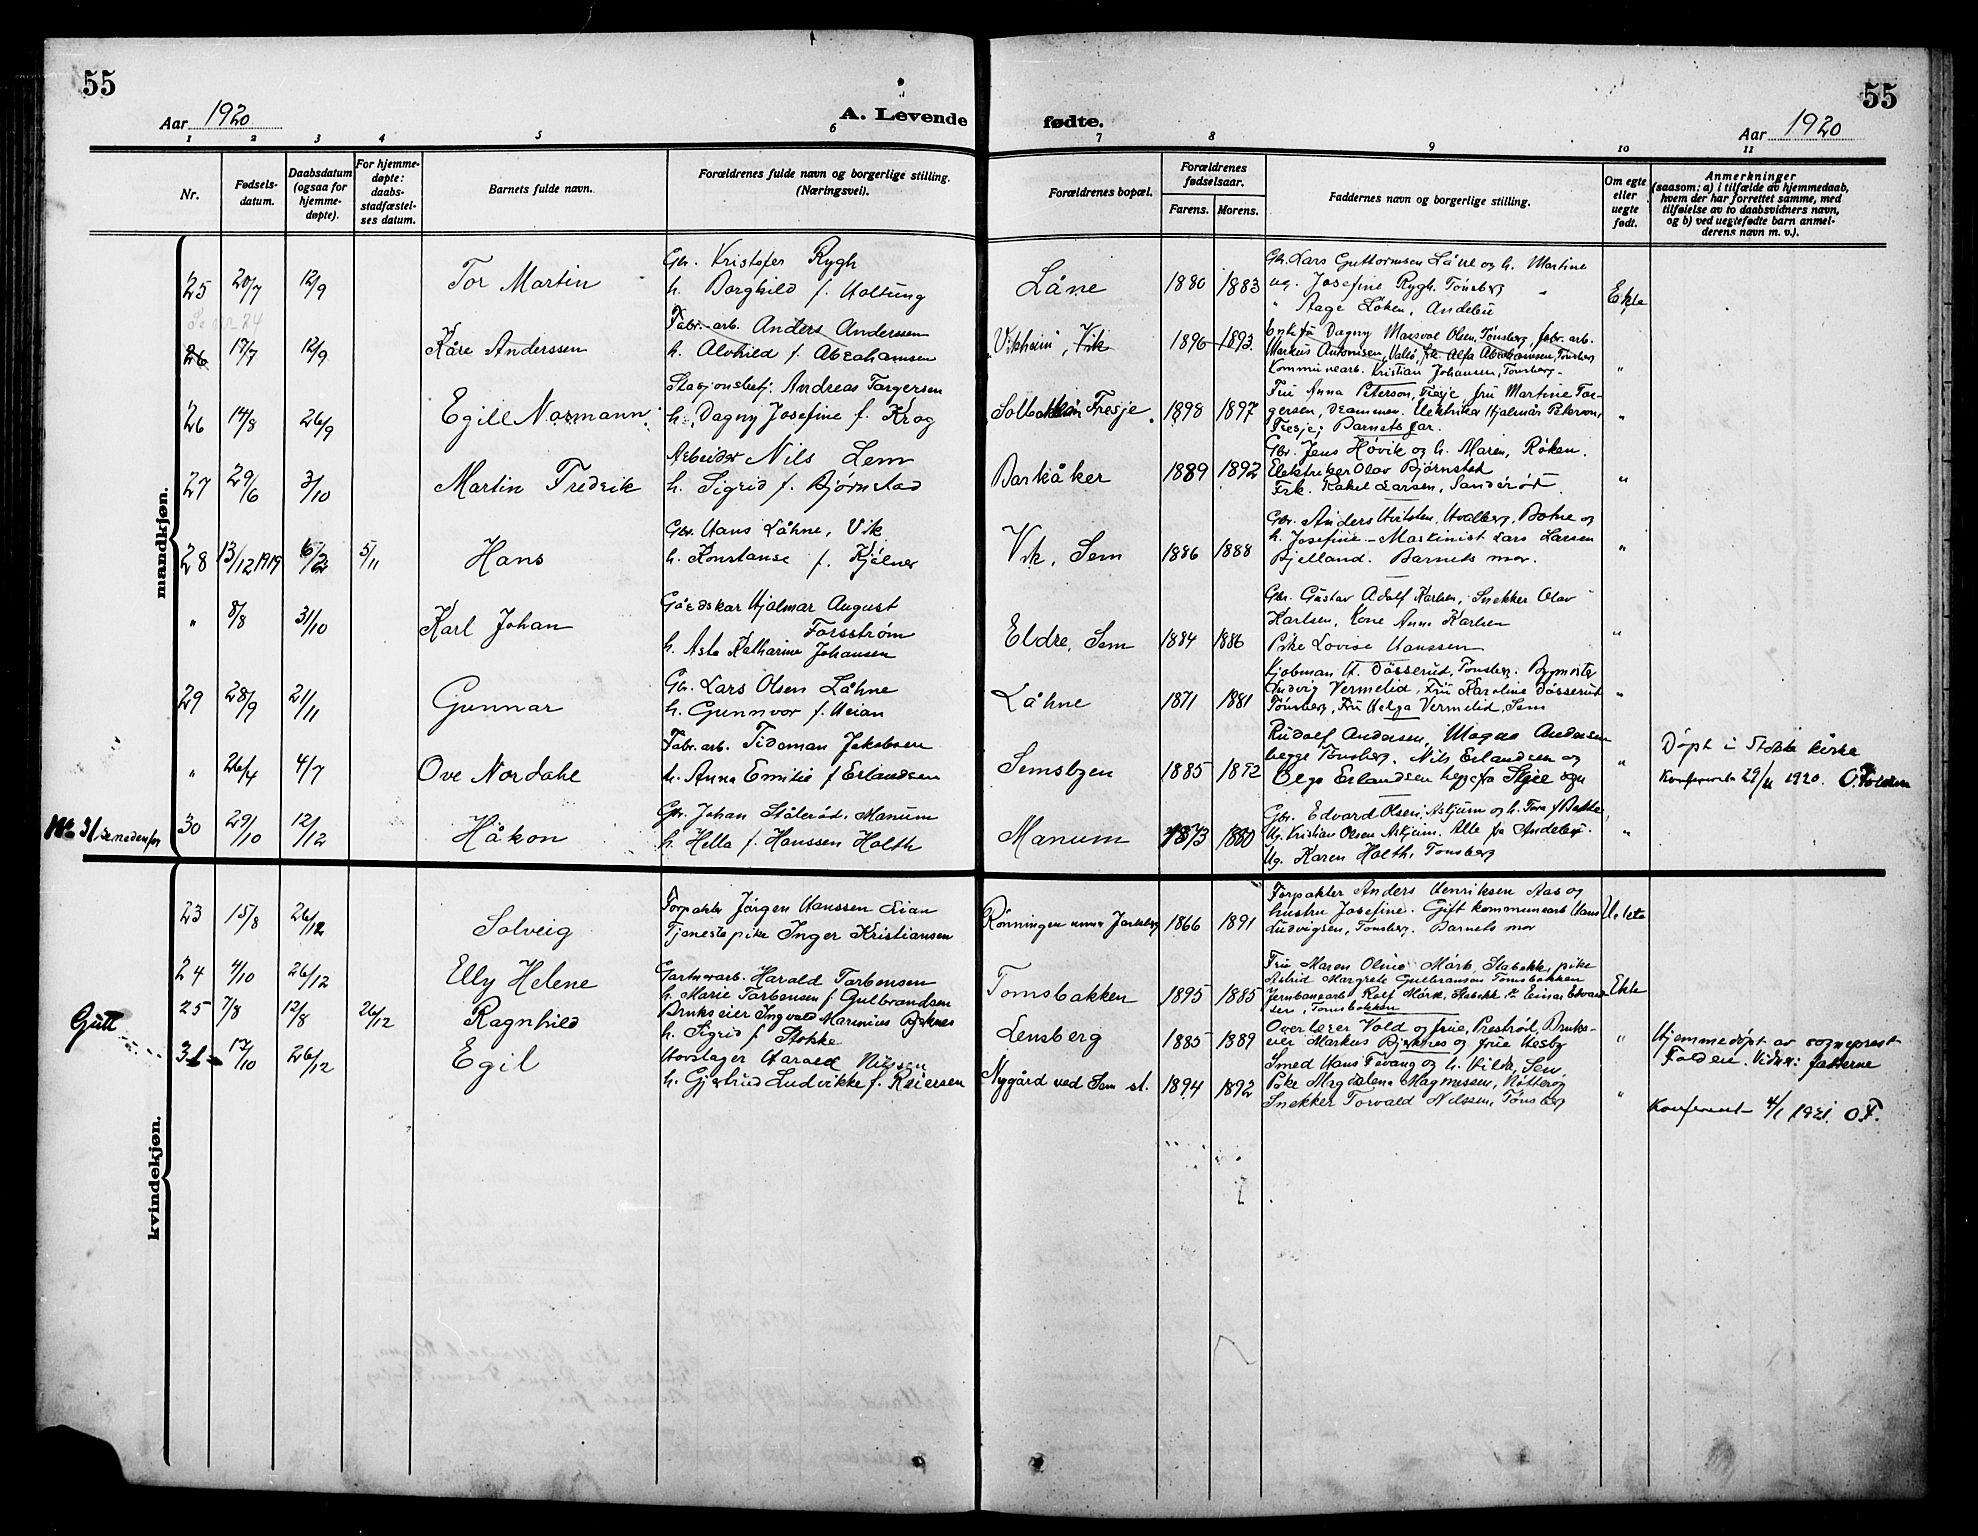 55
Aar 1920
A. Levende
fødte.
Aar 1920
55
1 2 3 4 5 6 7 8 9 10 11
Nr.
Fødsels-
datum.
Daabsdatum
(ogsaa for
hjemme-
døpte).
For hjemme-
døpte:
daabs-
stadfæstel-
ses datum.
Barnets fulde navn.
Forældrenes fulde navn og borgerlige stilling.
(Næringsvei).
Forældrenes bopæl.
Forældrenes
fødselsaar.
Farens. Morens.
Faddernes navn og borgerlige stilling.
Om egte
eller
uegte
født.
Anmerkninger
(saasom: a) i tilfælde av hjemmedaab,
hvem der har forrettet samme, med
tilføielse av to daabsvidners navn,
og b) ved uegtefødte barn anmel-
derens navn m. v.).
mandkjøn.
25 20/7 12/9 Tor Martin
Gbr. Kristofer Rygh
h. Borghild f. Holtung
Låne 1880 1883
Gbr. Lars Guttormsen Låne og h. Martine
ug. Josefine Rygh, Tønsberg
" Aage Løken, Andebu
Ekte
26 17/7 12/9 Kåre Anderssen
Fabr.-arb. Anders Anderssen
h. Alvhild f. Abrahamsen
Vikheim, Vik 1896 1893
Enkefru Dagny Olsen, Tønsberg, fabr. arb.
Markus Antonisen, Valø, frk. Alfa Abrahamsen, Tønsberg
Kommunearb. Kristian Johansen, Tønsberg
"
26 14/8 26/9 Egill Normann
Stasjonsbetj. Andreas Torgersen
h. Dagny Josefine f. Krog
Fresje 1898 1897
Fru Anna Peterson, Fresje, fru Martine Tor-
gersen, Drammen. Elektriker Hjalmar Peterson,
Fresje; Barnets far.
"
27 29/6 3/10 Martin Fredrik
Arbeider Nils Lem
h. Sigrid f. Bjørnstad
Barkåker 1889 1892
Gbr. Jens Høvik og h. Maren, Røken.
Elektriker Olav Bjørnstad
Frk. Rakel Larsen, Sanderød
"
28 13/12 1919 6/2 5/11 Hans
Gbr. Hans Låhne, Vik
h. Konstanse f. Kjølner
Vik, Sem 1886 1888
Gbr. Anders Hvitsten, Hvalberg, Botne og
h. Josefine - Maskinist Lars Larsen
Bjelland. Barnets mor.
"
" 8/8 31/10 Karl Johan
Gårdskar Hjalmar August
Forsstrøm
h. Asta Katharine Johansen
Eldre, Sem 1884 1886
Gbr. Gustav Adolf Karlsen, Snekker Olav
Karlsen, Kone Anna Karlsen
Pike Lovise Hanssen
"
29 28/9 21/11 Gunnar
Gbr. Lars Olsen Låhne
h. Gunnvor f. Heian
Låhne 1871 1881
Kjøbman H. Døsserud, Tønsberg. Bygmester
Ludvig Vermelid, Fru Karoline Døsserud
Tønsberg, Fru Helga Vermelid, Sem
"
" 26/4 4/7 Ove Nordahl
Fabr. arb. Tideman Jakobsen
h. Anna Emilie f Erlandsen
Semsbyen 1885 1892
Rudolf Andersen, Magna Andersen
begge Tønsberg. Nils Erlandsen og
Olga Erlandsen begge fra
"
Døpt i Stokke kirke
Konferert 29/11 1920. O. Folden
No 31 se nedenfor
30 29/10 12/12 Håkon
Gbr. Johan Stålerød, Manum
h. Hella f. Hanssen Holth
Manum 1873 1880
Gbr. Edvard Olsen, Askjum og h. Tora f Bakke,
Ug. Kristian Olsen Askjum. Alle fra Andebu.
Ug. Karen Holth, Tønsberg
"
kvindekjøn.
23 15/8 26/12 Solveig
Forpakter Jörgen Hanssen Lian
Tjenestepike Inger Kristiansen
Rönningen under Jarlsberg 1866 1891
Forpakter Anders Henriksen Aas og
hustru Josefine. Gift kommunearb Hans
Ludvigsen, Tønsberg. Barnets mor
Uekte
24 4/10 26/12 Elly Helene
Gartnerarb. Harald Torbensen
h. Marie Torbensen f. Gulbrandsen
Tomsbakken 1895 1885
Fru Maren Oline Mørk, Stabekk, pike
Astrid Margrete Gulbransen Tomsbakken
Jernbanearb Rolf Mørk, Stabekk Einar Edvard-
sen, Tomsbakken
Ekte
25 7/8 12/8 26/12 Ragnhild
Brukseier Ingvald Marinius Bjerknes
h. Sigrid f. Stokke
Lensberg 1885 1889
Overlærer Vold og frue, Prestrød, Bruks-
eier Markus Bjerknes og frue Hesby
"
Hjemmedøpt av sogneprest
Folden. Vidner: fadderne
Gutt
31 17/10 26/12 Egil
Hovslager Harald Nilssen
h. Gjertrud Ludvikke f. Reiersen
Nygård ved Sem st. 1894 1892
Smed Hans Fevang og h. Hilda, Sem,
Pike Magdalena Magnussen, Nøtterø
Snekker Torvald Nilssen, Tønsberg
"
Konferert 4/1 1921. O.F.